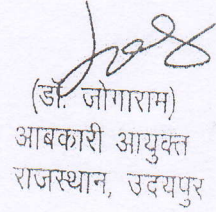 (डॉ. जोगाराम)
आबकारी आयुक्त
राजस्थान, उदयपुर